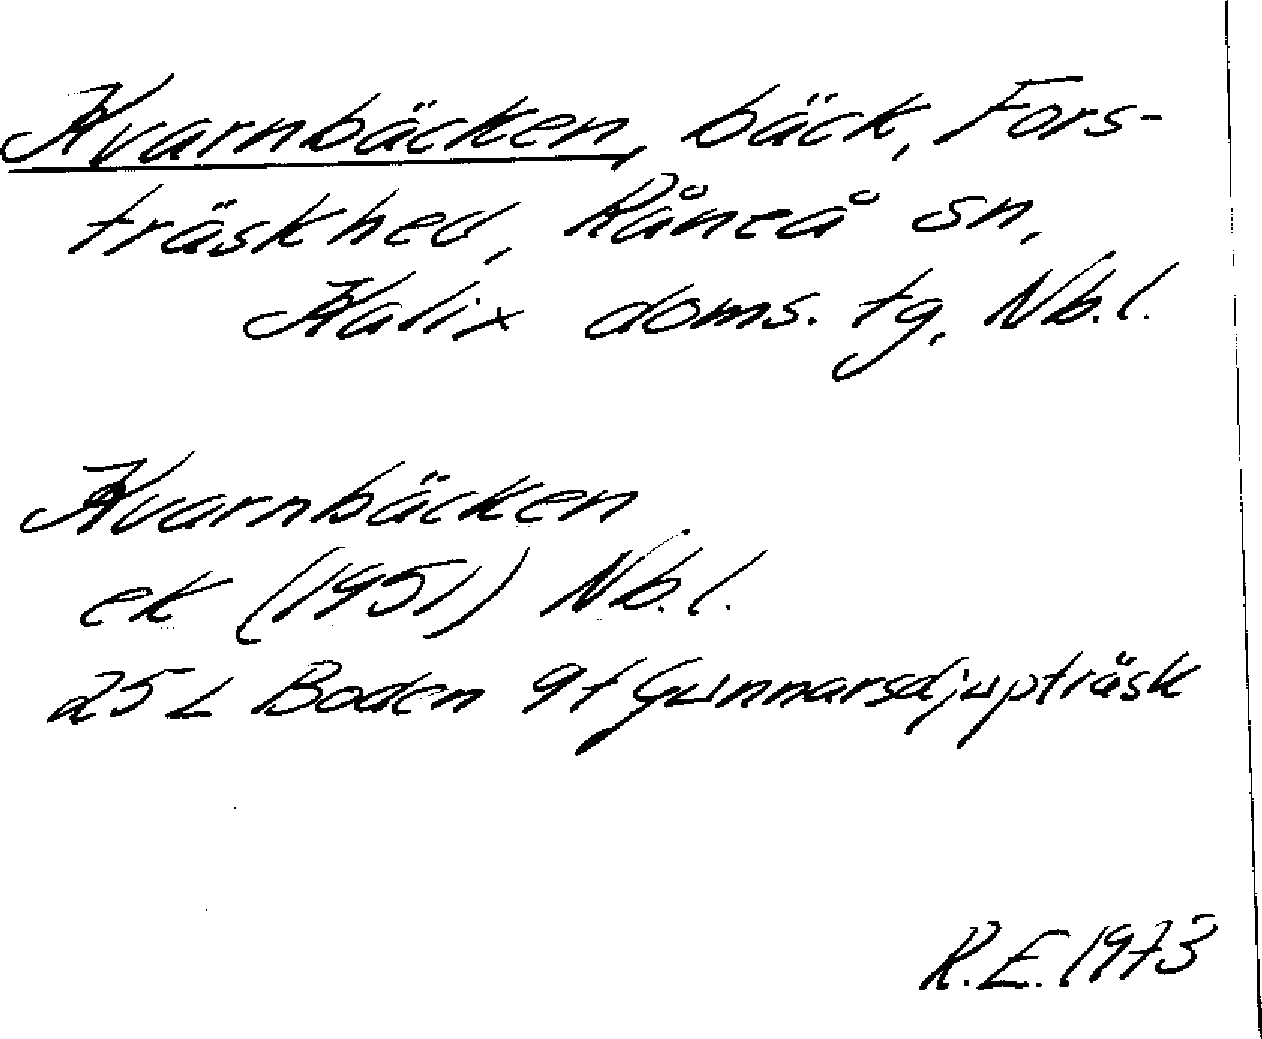 Kvarnbäcken, bäck, Fors-
träskhed, Råneå sn,
Kalix doms. tg, Nb.l.
Kvarnbäcken
ek (1951) Nb.l.
25 L Boden 9f Gunnarsdjupträsk
R.E. 1973